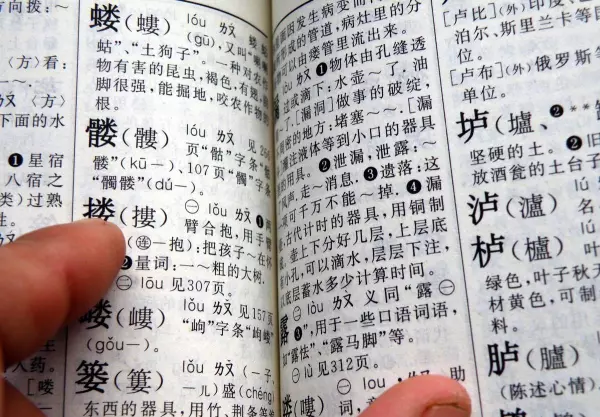 方向拨:~
〈方〉看:
~.
〈方〉
下面的水
❶星宿
八宿之
类)过熟
性.
王
入药.
[喽
蝼(螻) lóu ㄌㄡˊ 蝼
(gū),又叫“喇喇
蛄”、“土狗子”。一种对农作
物有害的昆虫,褐色,有翅,前
脚很强,能掘地,咬农作物的
根。
髅(髏) lóu ㄌㄡˊ 见
页“骷”字条“骷
髅”(kū—)、107页“髑”字条
“髑髅”(dú—)。
搂(摟) ㊀ lǒu ㄌㄡˇ ❶两
臂合抱,用手臂
(㊣—抱):把孩子~在怀
❷量词:一~粗的大树.
lōu 见307页。
嵝(嶁) lǒu ㄌㄡˇ 见157页
“岣”字条“岣嵝”
(gǒu—)。
篓(簍) lǒu ㄌㄡˇ (—子、
—儿)盛(chéng)
东西的器具,用竹、荆条等
因发生病变而
形成的管道,病灶里的分
可以由瘘管里流出来。
❶物体由孔缝透
过或滴下:水壶~了.油
~了.[漏洞]做事的破绽,
密的地方:堵塞~.[漏
灌注液体等到小口的器具
用具。❷泄漏,泄露:~
风声.走~消息.❸遗落:这
可千万不能~掉.❹漏
古代计时的器具,用铜制
壶上下分好几层,上层底
小孔,可以滴水,层层下注,
以底层蓄水多少计算时间。
露 ㊁ lòu ㄌㄡˋ 义同“露㊀
❸”,用于一些口语词语,
如“露怯”、“露马脚”等。
㊀ lù 见312页。
喽(嘍) ㊀ lou ˙ㄌㄡ 助
词,
[卢比](外)印度、
泊尔、斯里兰卡等国
位。
[卢布](外)俄罗斯等
单位。
垆(壚、❷**
坚硬的土。❷旧
放酒瓮的土台子
泸(瀘) lú
名
栌(櫨)
绿色,叶子秋天
材黄色,可制
料。
胪(臚)
(陈述心情)